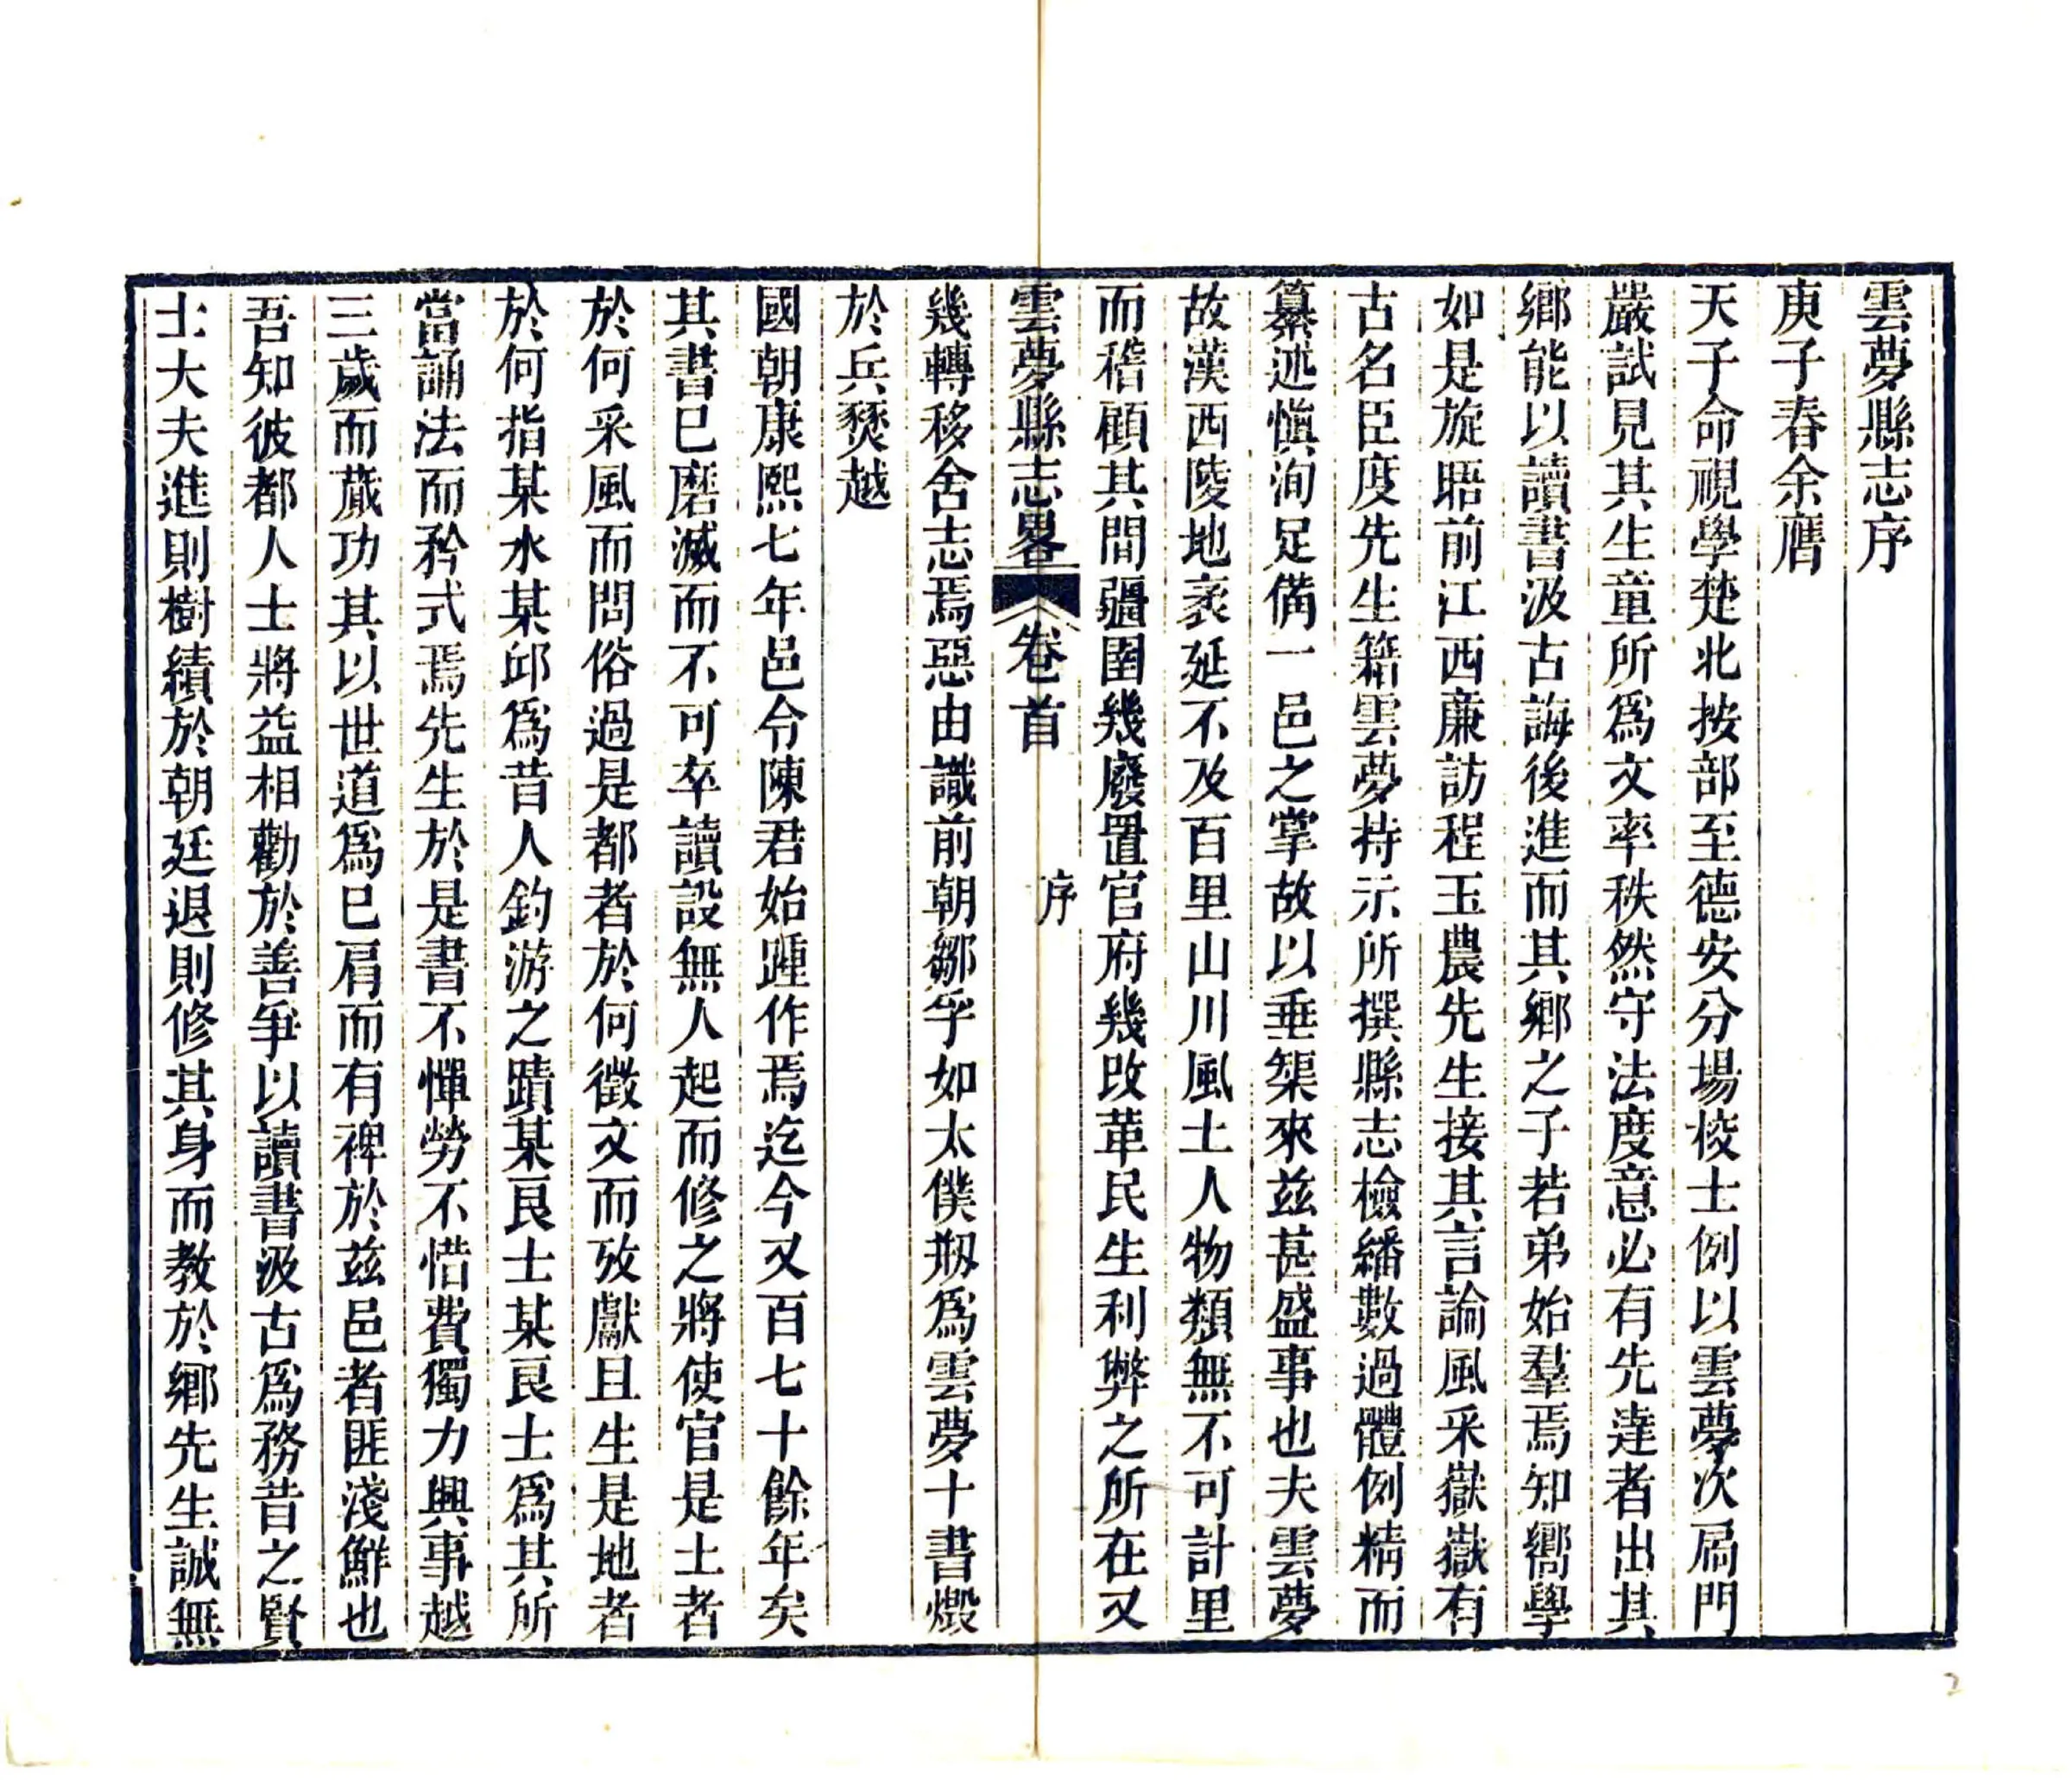 雲夢縣志序
庚子春余膺
天子命視學楚北按部至德安分場校士例以雲夢次扃門
嚴試見其生童所爲文率秩然守法度意必有先達者出其
鄉能以讀書汲古誨後進而其鄉之子若弟始羣焉知嚮學
如是旋晤前江西廉訪程玉農先生接其言論風采嶽嶽有
古名臣度先生籍雲夢持示所撰縣志檢繙數過體例精而
纂述愼洵足備一邑之掌故以垂榘來兹甚盛事也夫雲夢
故漢西陵地袤延不及百里山川風土人物類無不可計里
而稽顧其間疆圉幾廢置官府幾改革民生利弊之所在又
雲夢縣志畧 卷首 序
幾轉移舍志焉惡由識前朝鄒孚如太僕剏爲雲夢十書燬
於兵燹越
國朝康熙七年邑令陳君始踵作焉迄今又百七十餘年矣
其書巳磨滅而不可卒讀設無人起而修之將使官是土者
於何采風而問俗過是都者於何徵文而攷獻且生是地者
於何指某水某邱爲昔人釣游之蹟某艮士某艮士爲其所
當誦法而矜式焉先生於是書不憚勞不惜費獨力興事越
三歲而蕆功其以世道爲巳肩而有裨於兹邑者匪淺鮮也
吾知彼都人士將益相勸於善爭以讀書汲古爲務昔之賢
士大夫進則樹績於朝廷退則修其身而教於鄉先生誠無